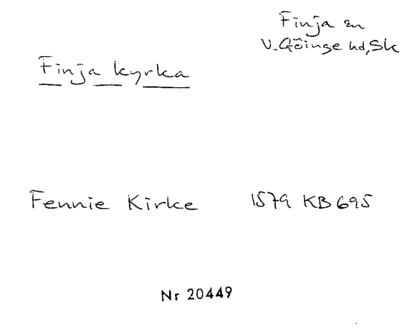 Finja sn
V. Göinge hd, Sk
Finja kyrka
Fennie Kirke 1579 KB 695
Nr 20449